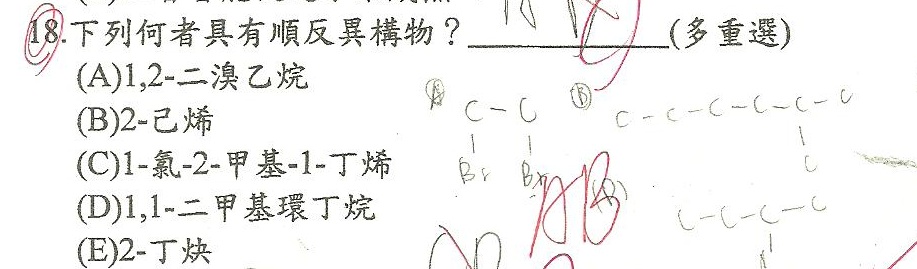 18.下列何者具有順反異構物？__________(多重選)
(A)1,2-二溴乙烷
(B)2-己烯
(C)1-氯-2-甲基-1-丁烯
(D)1,1-二甲基環丁烷
(E)2-丁炔
Ⓐ C-C
Br
Ⓑ C-C-C-C-C-C
C
AB
C-C-C-C